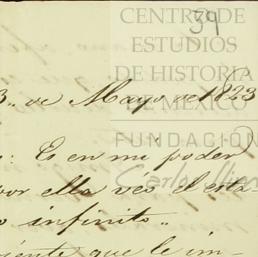 CENTRO DE
39
ESTUDIOS
DE HISTORIA
DE MEXICO
3.. de Mayo de 1823
FUNDACIÓN
: Es en mi poder
Carlos Slim
por ella véo el esta-
o infinito..
ente que le im-